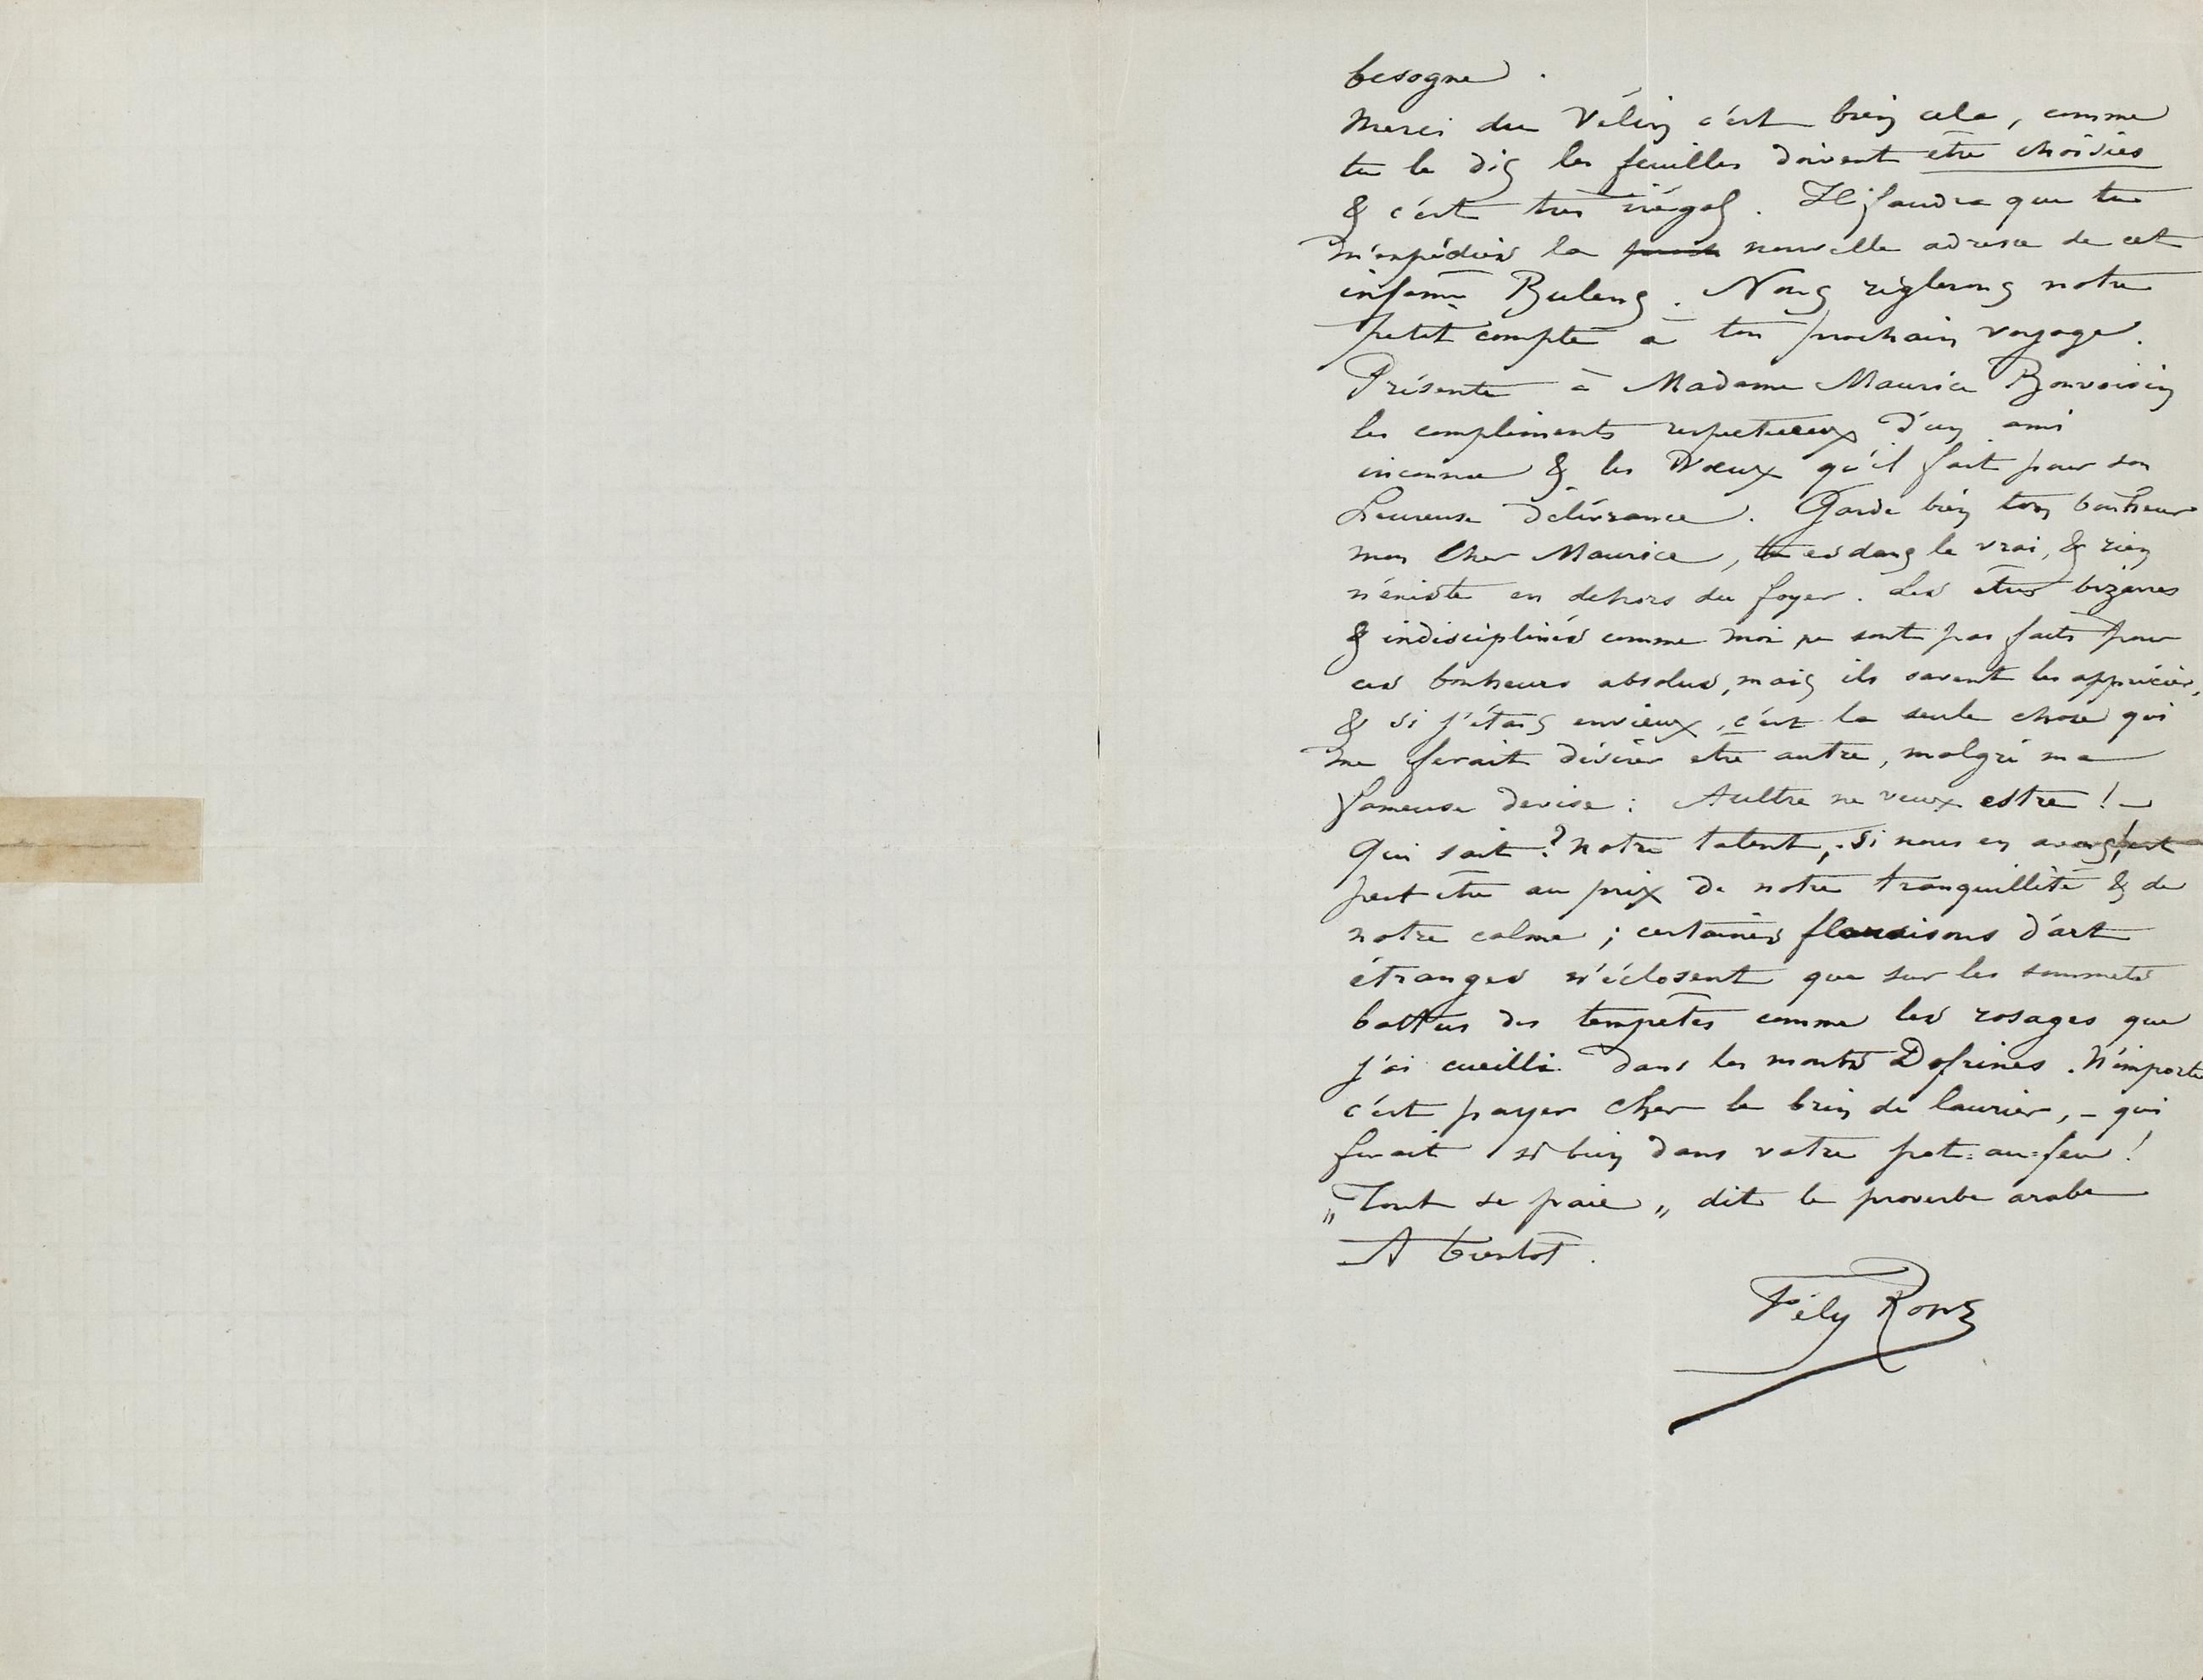 besogne.
Merci du Vélin c'est bien cela, comme
tu le dis les feuilles doivent être choisies
& c'est très inégal. Il faudra que tu
m'expédies la nouvelle adresse de cet
infâme Bulens. Nous règlerons notre
petit compte à ton prochain voyage.
Présente à Madame Maurice Bonvoisin
les compliments respectueux d'un ami
inconnu & les Vœux qu'il fait pour son
heureuse délivrance. Garde bien ton bonheur
mon Cher Maurice, tu es dans le vrai, & rien
n'existe en dehors du foyer. Les êtres bizarres
& indisciplinés comme moi ne sont pas faits pour
ces bonheurs absolus, mais ils savent les apprécier,
& si j'étais envieux, c'est la seule chose qui
me ferait désirer etre autre, malgré ma
fameuse devise : Aultre ne veux estre ! –
Qui sait ? Notre talent, si nous en avons, c'est
peut être au prix de notre tranquillité & de
notre calme ; certaines floraisons d'art
étranges n'éclosent que sur les sommets
battus des tempêtes comme les rosages que
j'ai cueilli dans les monts Dofrines. N'importe
c'est payer cher le brin de laurier, – qui
ferait si bien dans votre pot=au=feu !
„Tout se paie„ dit le proverbe arabe
A bientot.
Fély Rops